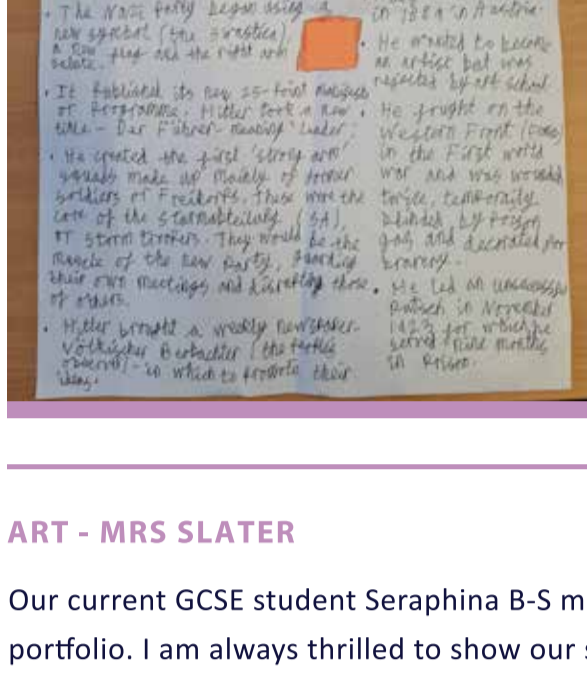 • The Nazi Party began using a
new symbol (the swastica),
a new flag and the right arm
salute.
• It published its new 25-point
or Programme. Hitler took a new
title - Der Führer - meaning 'Leader'.
• He created the first 'strong arm'
squads made up mainly of former
soldiers of Freikorps. These were the
core of the Sturmabteilung (SA),
or storm troopers. They would be the
muscle of the new party, guarding
their own meetings and disrupting those
of others.
• Hitler brought a weekly newspaper.
Völkischer Beobachter (the
- in which to promote their
ideas.
in 1889 in Austria.
• He wanted to become
an artist but was
rejected by art school.
• He fought on the
Western Front
in the First World
War and was wounded
twice, temporarily
blinded by poison
gas and decorated for
bravery.
• He led an unsuccessful
Putsch in November
1923 for which he
served nine months
in prison.
ART - MRS SLATER
Our current GCSE student Seraphina B-S m
portfolio. I am always thrilled to show our s